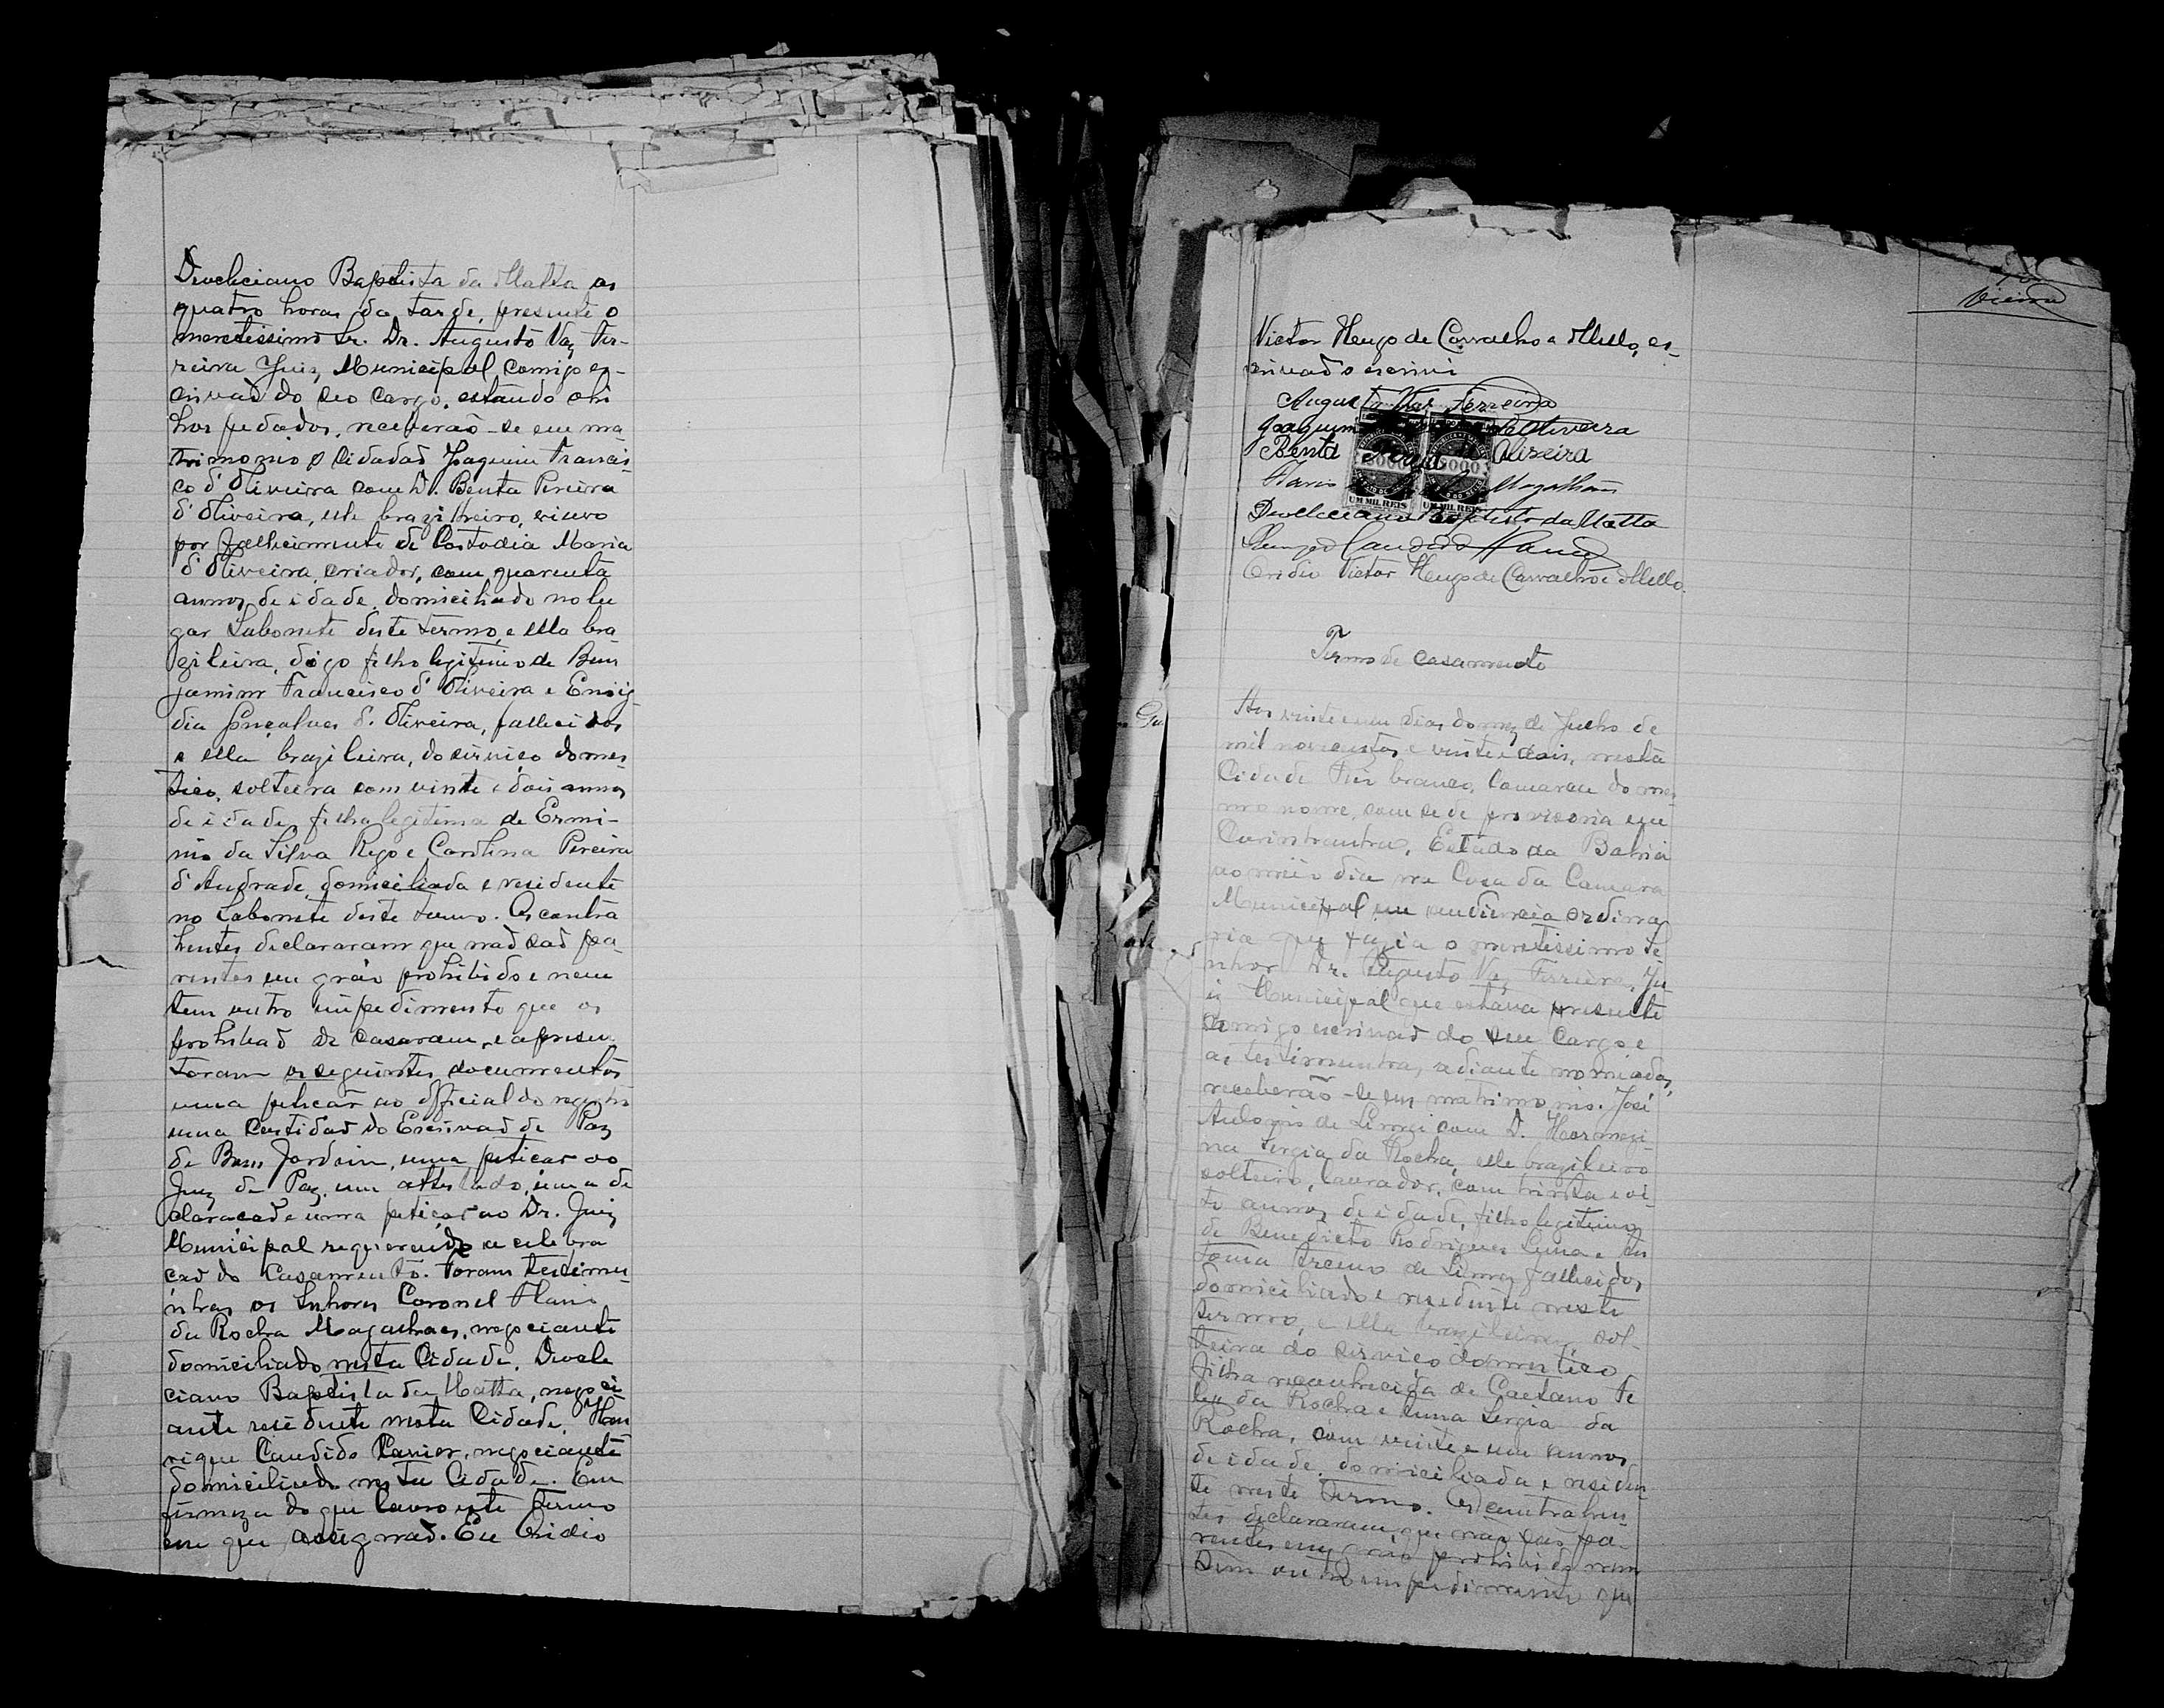 Deocleciano Baptista da Matta as
quatro horas da tarde, presente o
meretissimo Sr. Dr. Augusto Vaz Fer-
reira Juiz Municipal, comigo es-
crivaõ do seo cargo, estando ahi
hospedados, receberão-se em ma
trimonio o Cidadaõ Joaquim Francis-
co d'Oliveira com D. Benta Pereira
d'Oliveira, elle brazilheiro, viuvo
por fallecimento de Custodia Maria
d'Oliveira, criador, com quarenta
annos de idade, domiciliado no lu
gar Sabonete deste termo, e ella bra
zileira, digo filho legitimo de Ben
jamim Francisco d'Oliveira e
dia Gonçalves d'Oliveira, fallecidos
e ella brazileira, do serviço domes
tico, solteira com vinte e dois annos
de idade, filha legitima de Ermi-
nio da Silva Rego e Carolina Pereira
d'Andrade, domiciliada e residente
no Sabonete deste termo. Os contra
hentes declararam que naõ saõ pa-
rentes em gráo prohibido e nem
tem outro impedimento que os
prohibaõ de casarem, e apresen
taram os seguintes documentos
uma peticão ao official do registro
uma Certidaõ do Escrivaõ de Paz
de Bom Jardim, uma peticaõ ao
Juiz de Paz, um attestado, uma de
claracaõ e uma peticaõ ao Dr. Juiz
Municipal requerendo a celebra
caõ do Casamento. Foram testemu-
nhas os Senhores Coronel Flavio
da Rocha Magalhães, negociante
domiciliado nesta Cidade, Deocle
ciano Baptista da Matta, negoci
ante residente nesta Cidade, Hen
rique Candido Xavier, negociante
domiciliado nesta Cidade. Em
firmeza do que lavro este termo
em que assignaõ. Eu Ovidio
Vieira
Victor Hugo de Carvalho e Mello, es-
crivaõ o escrevi
Augusto Vaz Ferreira
Joaquim de Oliveira
Benta de Oliveira
Magalhães
Deocleciano Baptista da Matta
Candido
Ovidio Victor Hugo de Carvalho e Mello.
UM MIL REIS
UM MIL REIS
Termo de casamento
Aos vinte e um dias do mez de Julho de
mil novecentos e vinte e dois, nesta
Cidade Rio branco, Comarca do mes
mo nome, com sede provisoria em
Carinhanha, Estado da Bahia
ao meio dia na Casa da Camara
Municipal em audiencia ordina
ria que fazia o meretissimo Se
nhor Dr. Augusto Vaz Ferreira, Ju
iz Municipal que estava presente
comigo escrivaõ do seu Cargo e
as testimunhas adiante nomiadas,
receberão-se em matrimonio. José
com D.
na Sergia da Rocha, elle brazileiro
solteiro, lavrador, com trinta e oi-
to annos de idade, filho legitimo
de Benedicto Rodrigues
fallecidos
domiciliado e residente neste
termo, e ella brazileira, sol-
teira do serviço domestico
filha reconhecida de Caetano Te
les da Rocha e Anna Sergia da
Rocha, com vinte e um annos
de idade, domiciliada e residen
te neste termo. Os contrahen-
tes declararam que naõ saõ pa-
rentes em gráo prohibido nem
tem outro impedimento que